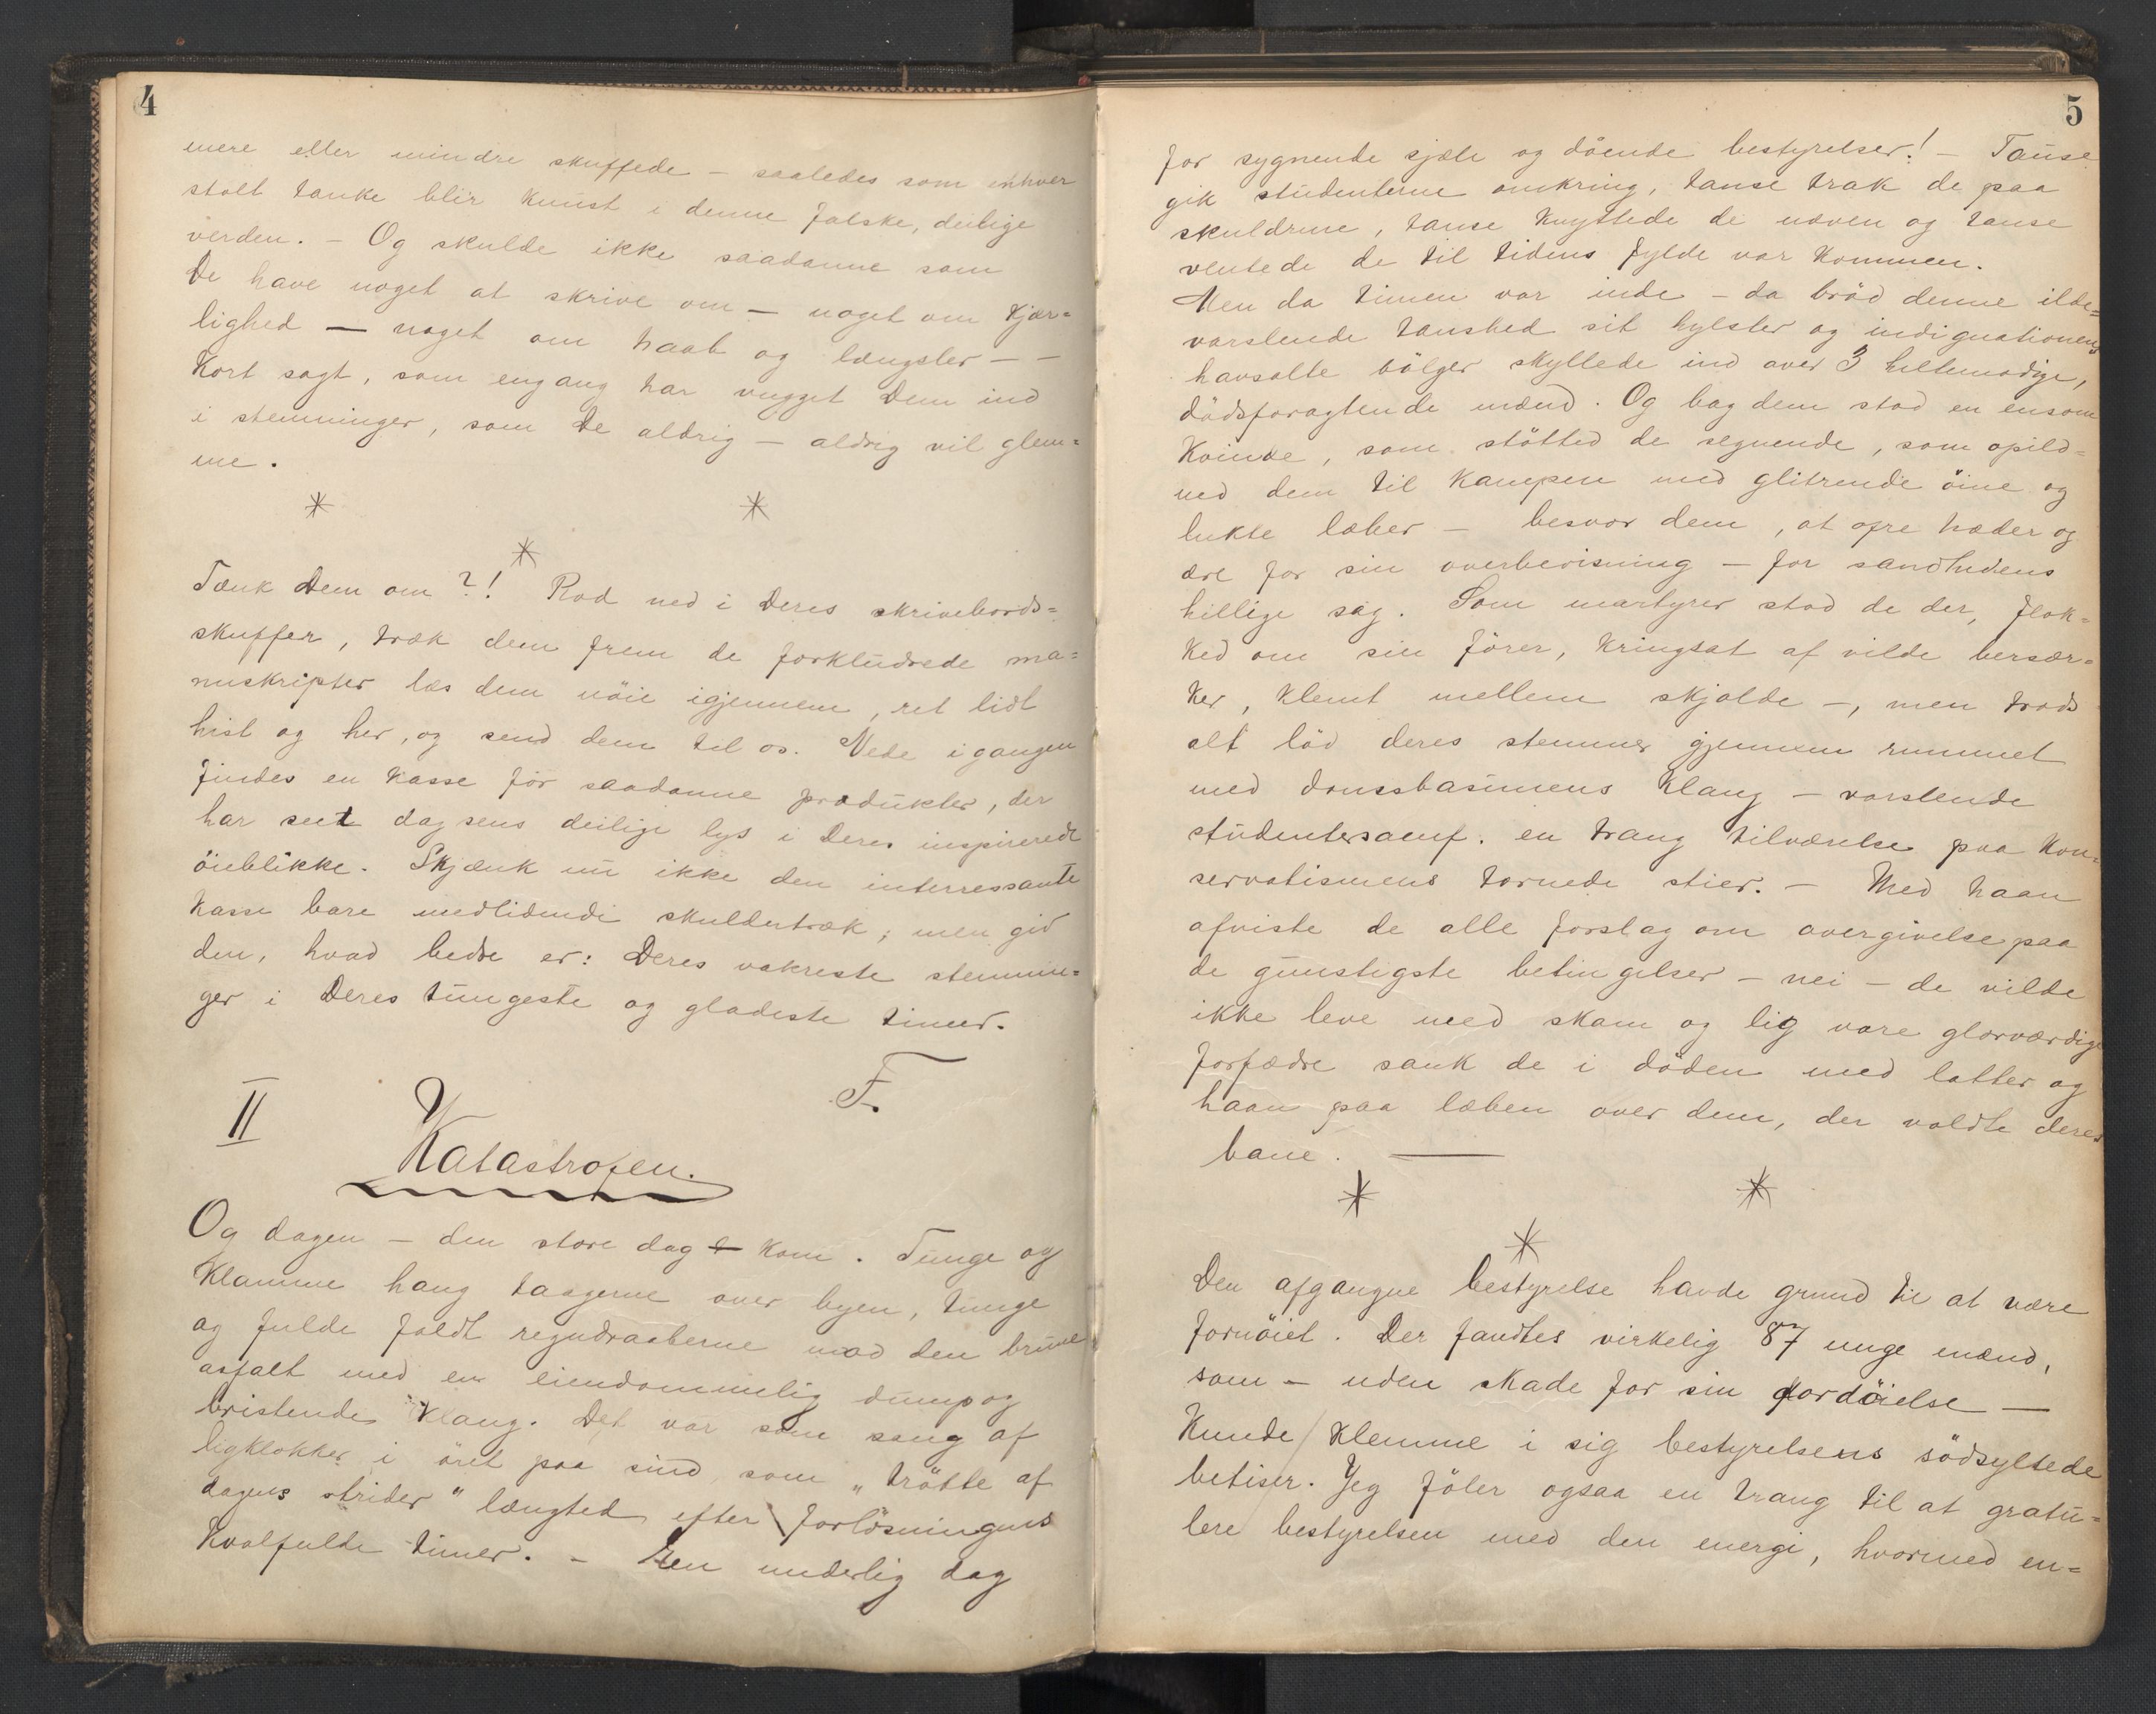 4
mere eller mindre skuffede - saaledes som enhver
stolt tanke blir kunst i denne falske, deilige
verden. - Og skulde ikke saadanne som
De have noget at skrive om - noget om kjær=
lighed - noget om haab og længsler - -
Kort sagt, som engang har vugget Dem ind
i stemninger, som De aldrig - aldrig vil glem=
me.
* *
*
Tænk Dem om?! Rod ned i Deres skrivebords=
skuffer, træk dem frem de forkludrede ma=
nuskripter læs dem nöie igjennem, ret lidt
hist og her, og send dem til os. Nede i gangen
findes en kasse för saadanne produkter, der
har seet dagsens deilige lys i Deres inspirerede
öieblikke. Skjænk nu ikke den interressante
kasse bare medlidende skuldertræk; men giv
den, hvad bedre er: Deres vakreste stemnin=
ger i Deres tungeste og gladeste timer.
F.
II Katastrofen.
Og dagen - den store dag - kom. Tunge og
klamme hang taagerne over byen, tunge
og fulde faldt regndraaberne mod den brune
asfalt med en eiendommelig dump og
bristende klang. Det var som sang af
ligklokker i öret paa sind som „trötte af
dagens strider" længted efter forlösningens
kvalfulde timer. - En underlig dag
5
for sygnende sjæle og döende bestyrelser! - Tause
gik studenterne omkring, tause trak de paa
skuldrene, tause knyttede de næven og tause
ventede de til tidens fylde var kommen.
Men da timen var inde - da bröd denne ilde=
varslende taushed sit hylster og indignationens
havsalte bölger skyllede ind over 3 heltemodige,
dödsforagtende mænd. Og bag dem stod en ensom
Kvinde, som stötted de segnende, som opild=
ned dem til kampen med glitrende öine og
lukte læber - besvor dem, at ofre hæder og
ære for sin overbevisning - for sandhedens
hellige sag. Som martyrer stod de der, flok=
ked om sin förer, kringsat af vilde bersær=
ker, klemt mellem skjolde -, men trods
alt löd deres stemmer gjennem rummet
med domsbasunens klang - varslende
studentersamf. en trang tilværelse paa kon=
servatismens tornede stier. - Med haan
afviste de alle forslag om overgivelse paa
de gunstigste betingelser - nei - de vilde
ikke leve med skam og lig vore glorværdige
forfædre sank de i döden med latter og
haan paa læben over dem, der voldte deres
bane. —
* *
*
Den afgangne bestyrelse havde grund til at være
fornöiet. Der fandtes virkelig 87 unge mænd,
som - uden skade for sin fordöielse -
kunde klemme i sig bestyrelsens södsyltede
betiser. Jeg föler ogsaa en trang til at gratu=
lere bestyrelsen med den energi, hvormed en=